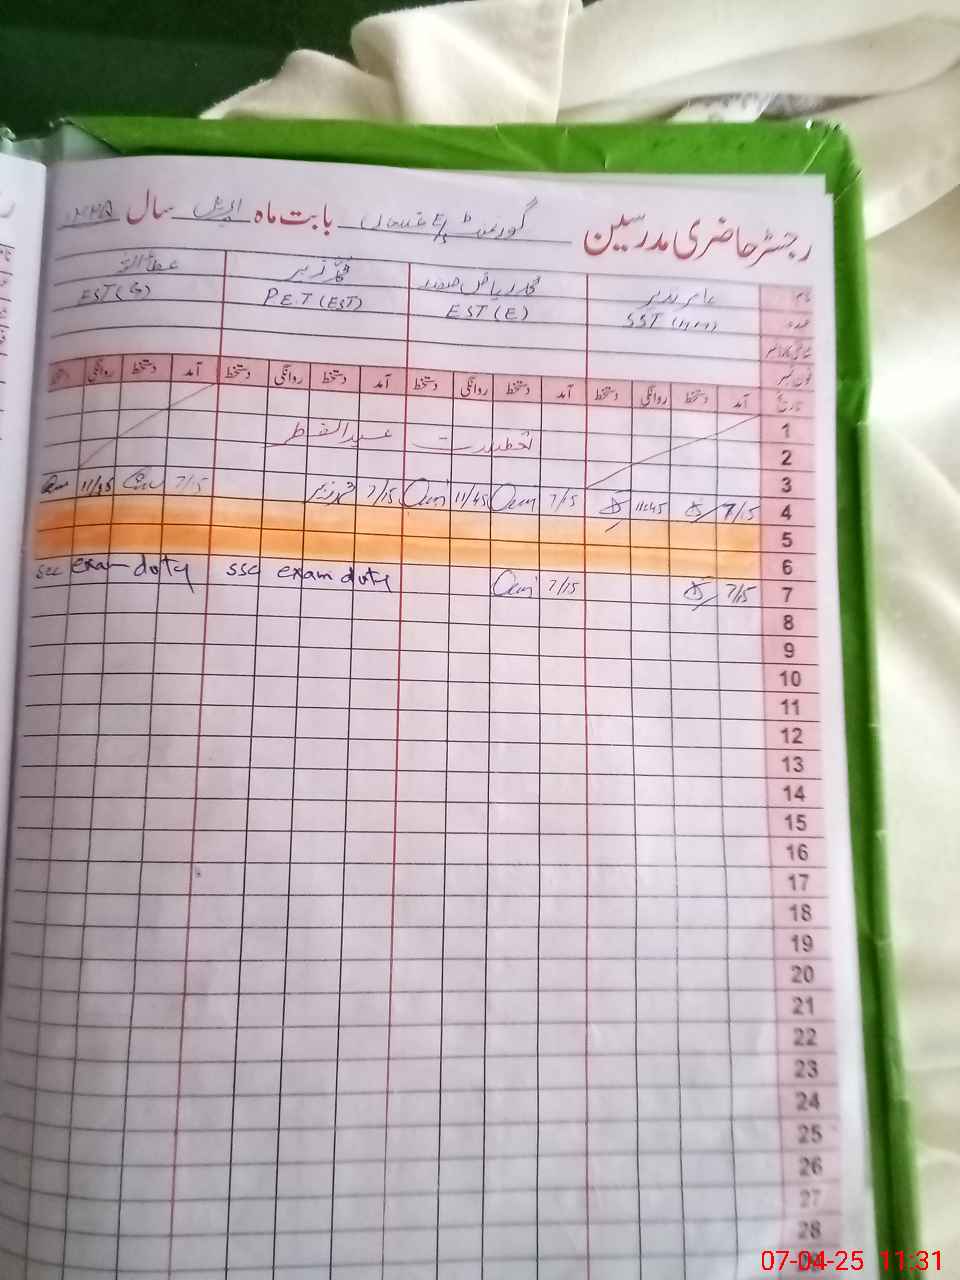 رجسٹر حاضری مدرسین گورنمنٹ E/S بابت ماہ اپریل سال
نام محمد زبیر
عہدہ SST EST (E) P.E.T (EST) EST (G)
فون نمبر
تاریخ آمد دستخط روانگی دستخط آمد دستخط روانگی دستخط آمد دستخط روانگی دستخط آمد دستخط روانگی دستخط
1
2 تعطیلات عیدالفطر
3
4 7/15 11:45 7/15 11/45 7/15 7/15 11/45
5
6
7 7/15 7/15 ssc exam duty ssc exam duty
8
9
10
11
12
13
14
15
16
17
18
19
20
21
22
23
24
25
26
27
28
07-04-25 11:31